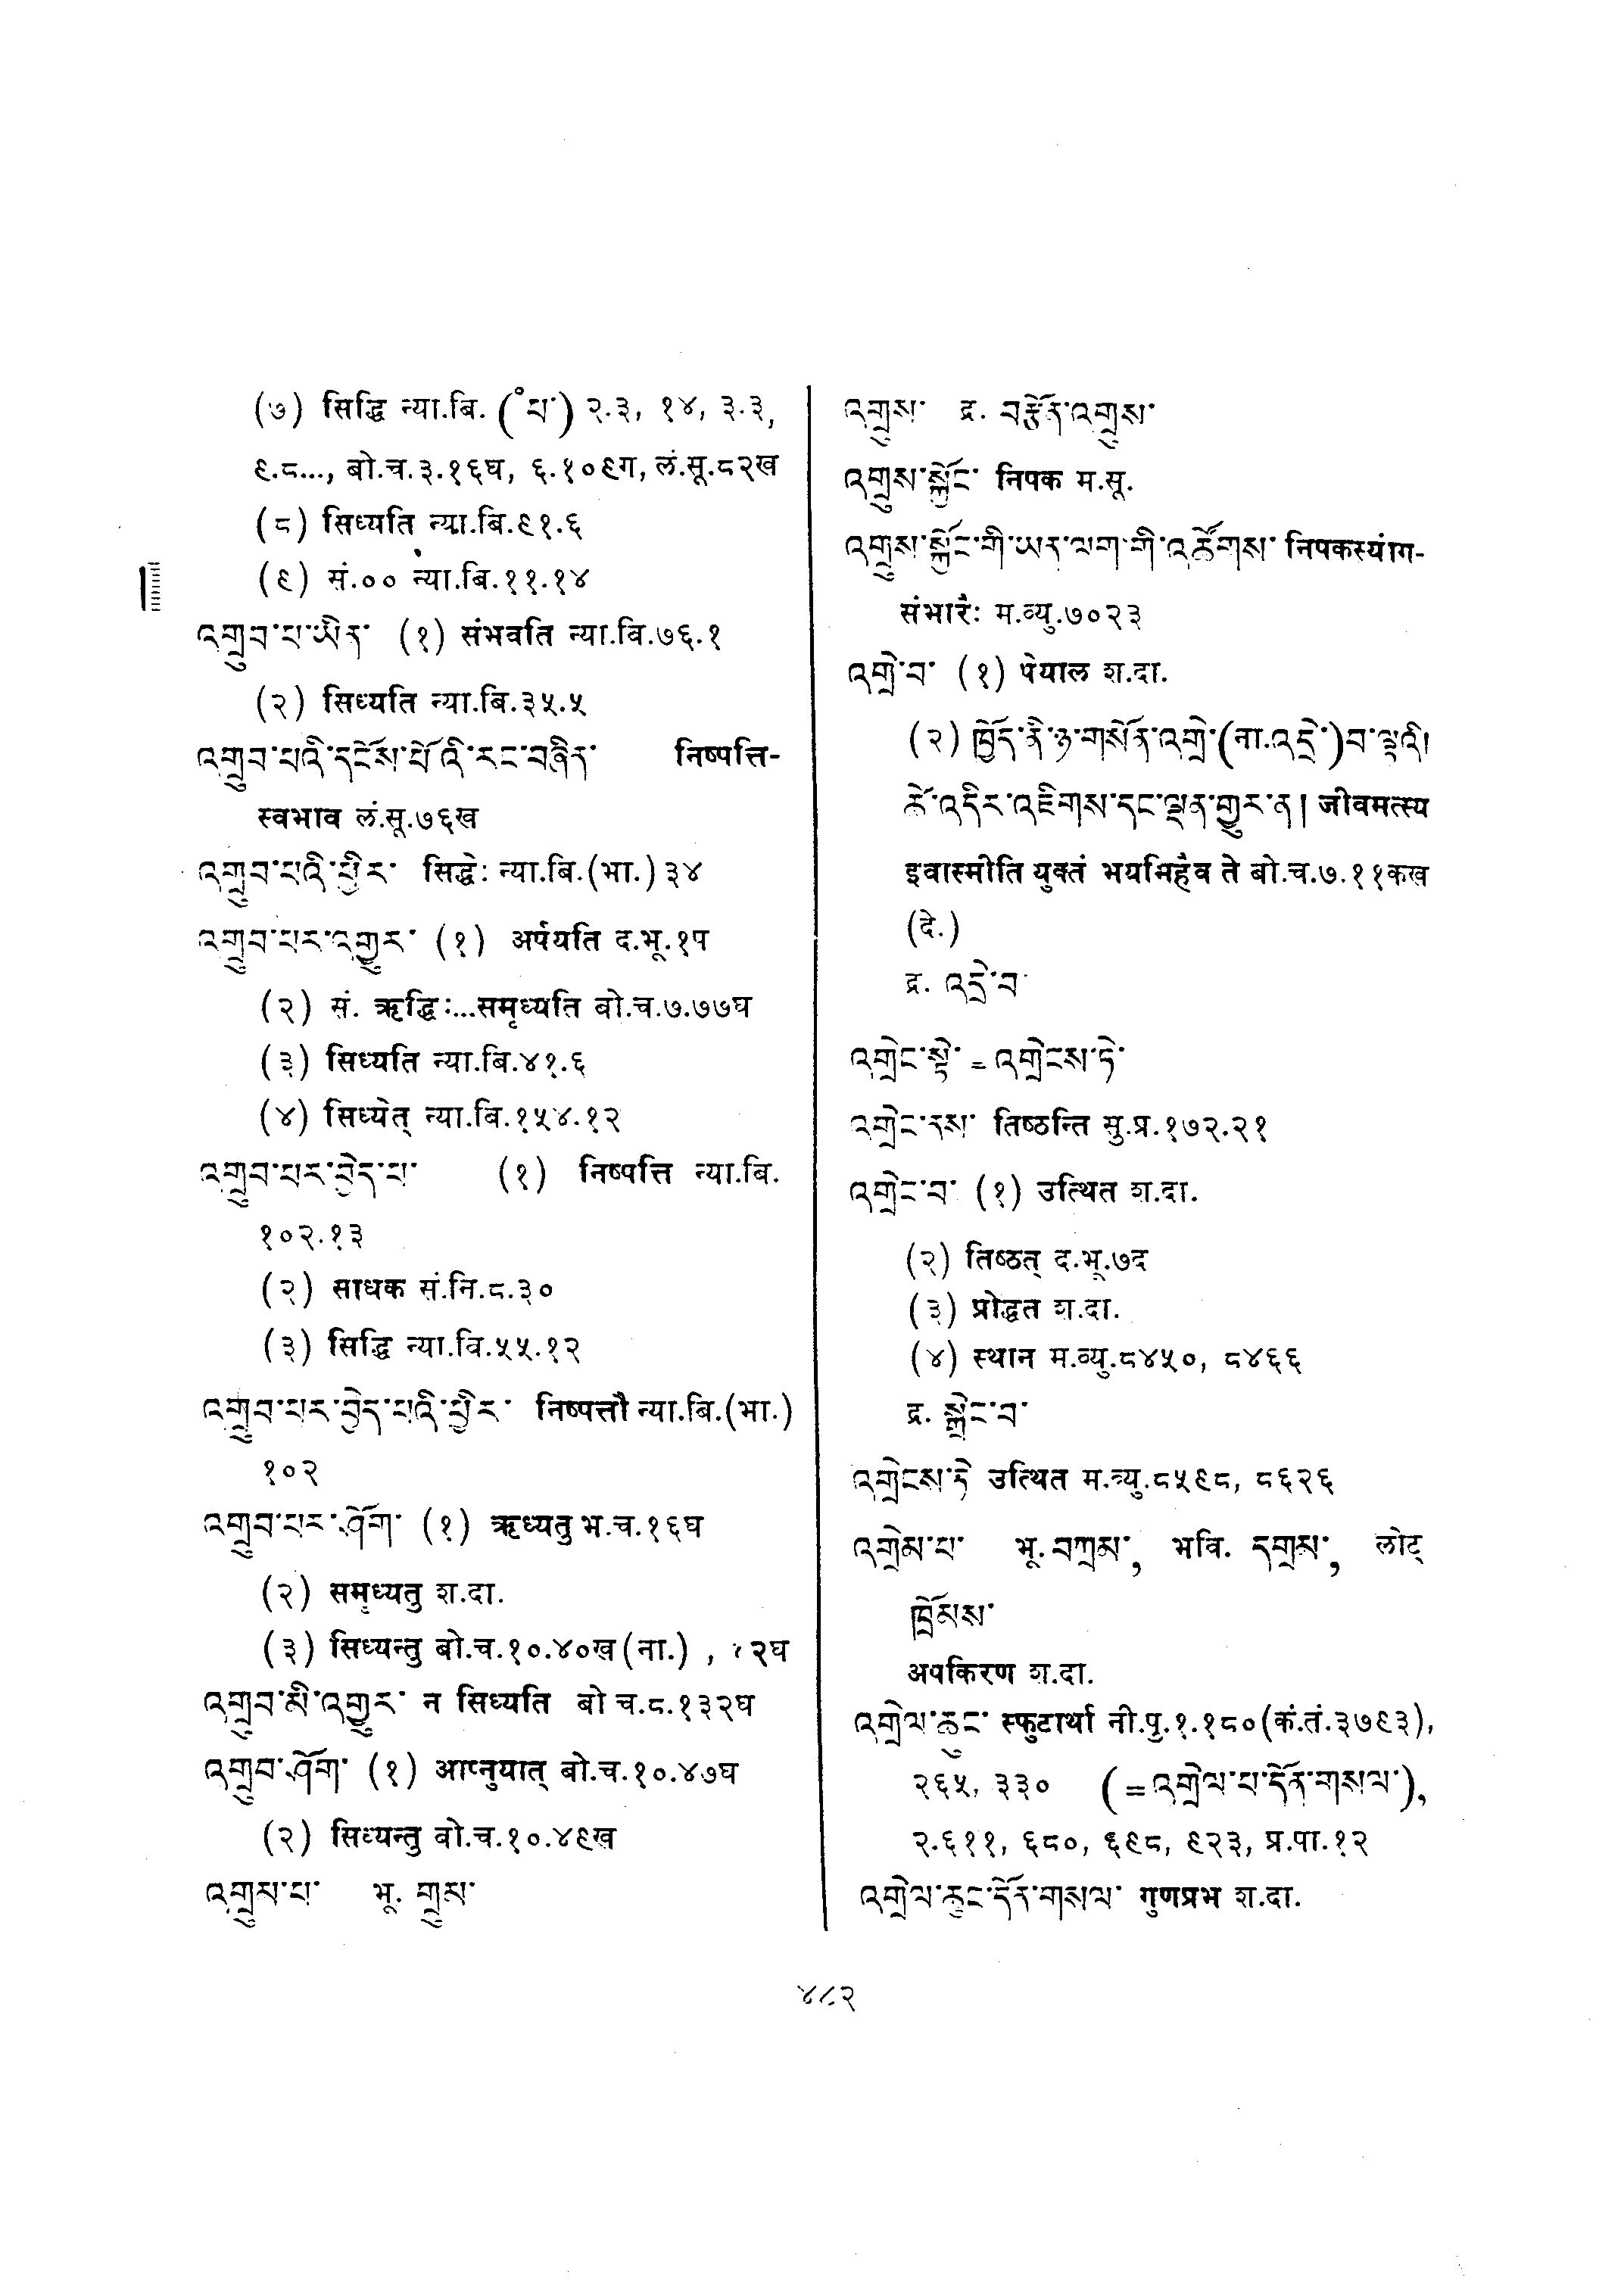 (७) सिद्धि न्या.बि. (॰པ་) २.३, १४, ३.३,
९.८..., बो.च.३.१६घ, ६.१०९ग, लं.सू.८२ख
(८) सिध्यति न्या.बि.९१.६
(९) सं.०० न्या.बि.११.१४
འགྲུབ་པ་ཡིན་ (१) संभवति न्या.वि.७६.१
(२) सिध्यति न्या.बि.३५.५
འགྲུབ་པའི་དངོས་པོའི་རང་བཞིན་ निष्पत्ति-
स्वभाव लं.सू.७६ख
འགྲུབ་པའི་ཕྱིར་ सिद्धेः न्या.बि.(भा.)३४
འགྲུབ་པར་འགྱུར་ (१) अर्पयति द.भू.१प
(२) सं. ऋद्धिः...समृध्यति बो.च.७.७७घ
(३) सिध्यति न्या.बि.४१.६
(४) सिध्येत् न्या.बि.१५४.१२
འགྲུབ་པར་བྱེད་པ་ (१) निष्पत्ति न्या.बि.
१०२.१३
(२) साधक सं.नि.८.३०
(३) सिद्धि न्या.वि.५५.१२
འགྲུབ་པར་བྱེད་པའི་ཕྱིར་ निष्पत्तौ न्या.बि.(भा.)
१०२
འགྲུབ་པར་ཤོག་ (१) ऋध्यतु भ.च.१६घ
(२) समृध्यतु श.दा.
(३) सिध्यन्तु बो.च.१०.४०ख(ना.) , २घ
འགྲུབ་མི་འགྱུར་ न सिध्यति बो च.८.१३२घ
འགྲུབ་ཤོག་ (१) आप्नुयात् बो.च.१०.४७घ
(२) सिध्यन्तु बो.च.१०.४९ख
འགྲུས་པ་ भू. གྲུས་
འགྲུས་ द्र. བརྩོན་འགྲུས་
འགྲུས་སྐྱོང་ निपक म.सू.
འགྲུས་སྐྱོང་གི་ཡན་ལག་གི་འཚོགས་ निपकस्यांग-
संभारः म.व्यु.७०२३
འགྲེ་བ་ (१) पेयाल श.दा.
(२) ཁྱོད་ནི་ཉ་གསོན་འགྲེ་(ना.འདྲེ་)བ་ལྟའི།
ཚེ་འདིར་འཇིགས་དང་ལྡན་གྱུར་ན། जीवमत्स्य
इवास्मीति युक्तं भयमिहैव ते बो.च.७.११कख
(दे.)
द्र. འདྲེ་བ་
འགྲེང་སྟེ་ = འགྲེངས་ཏེ་
འགྲེང་ནས་ तिष्ठन्ति सु.प्र.१७२.२१
འགྲེང་བ་ (१) उत्थित श.दा.
(२) तिष्ठत् द.भू.७द
(३) प्रोद्धत श.दा.
(४) स्थान म.व्यु.८४५०, ८४६६
द्र. སྒྲེང་བ་
འགྲེངས་ཏེ་ उत्थित म.व्यु.८५९८, ८६२६
འགྲེམ་པ་ भू. བཀྲམ་, भवि. དགྲམ་, लोट्
ཁྲོམས་
अपकिरण श.दा.
འགྲེལ་ཆུང་ स्फुटार्था नी.पु.१.१८०(कं.तं.३७९३),
२६५, ३३० (=འགྲེལ་པ་དོན་གསལ་),
२.६११, ६८०, ६९८, ९२३, प्र.पा.१२
འགྲེལ་ཆུང་དོན་གསལ་ गुणप्रभ श.दा.
४८२